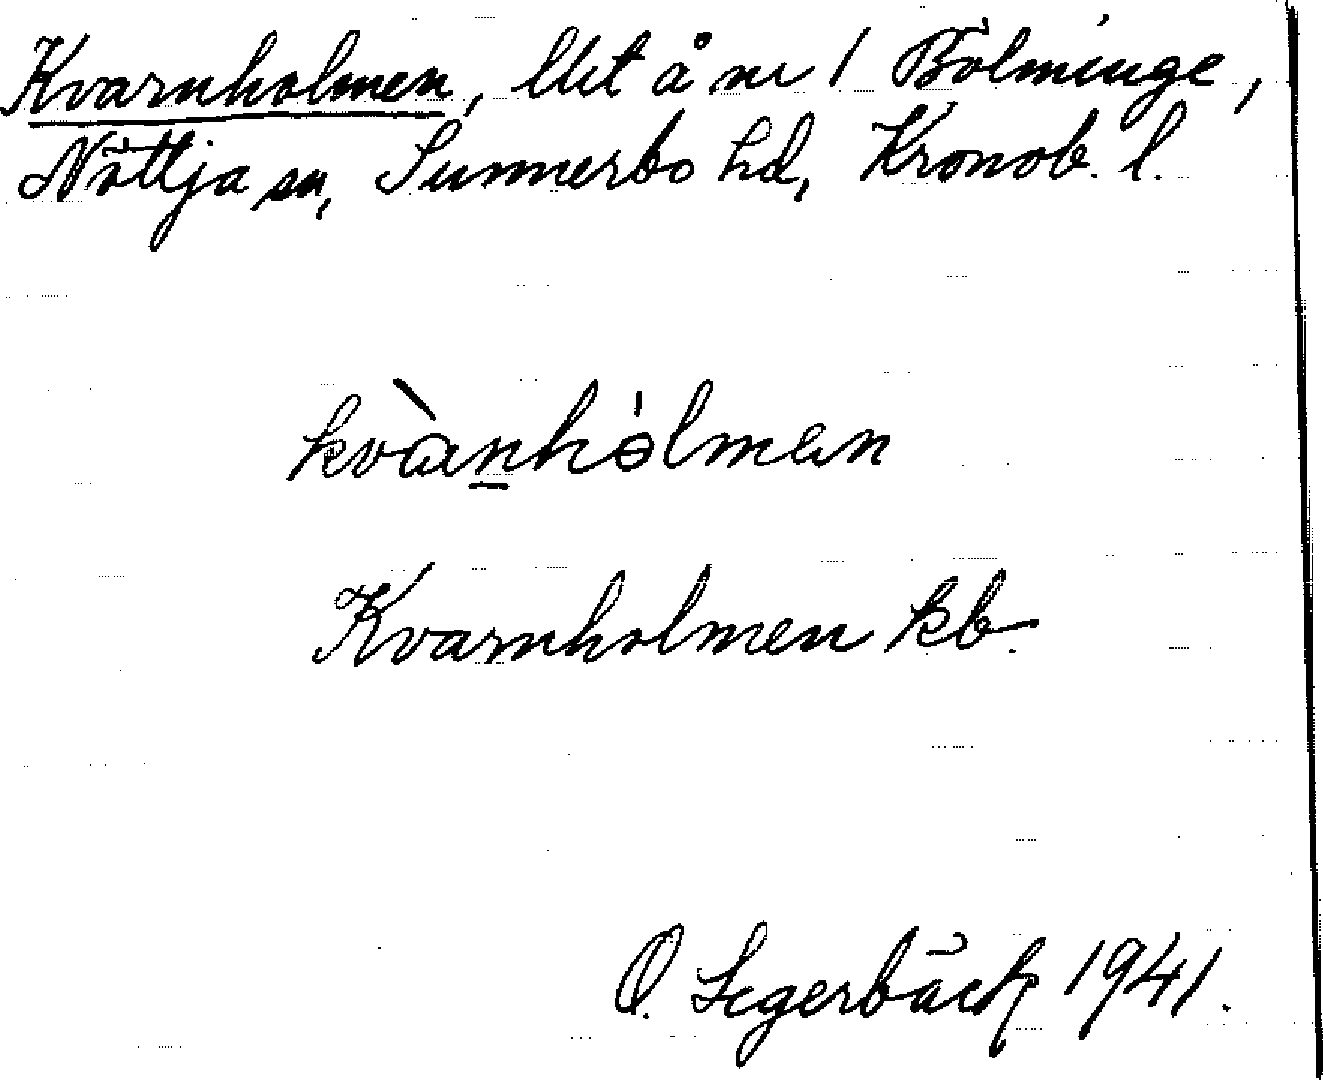 Kvarnholmen, llht å nr 1 Bölminge,
Nöttja sn, Sunnerbo hd, Kronob. l.
kvànhólman
Kvarnholmen kb.
O. Segerbäck 1941.